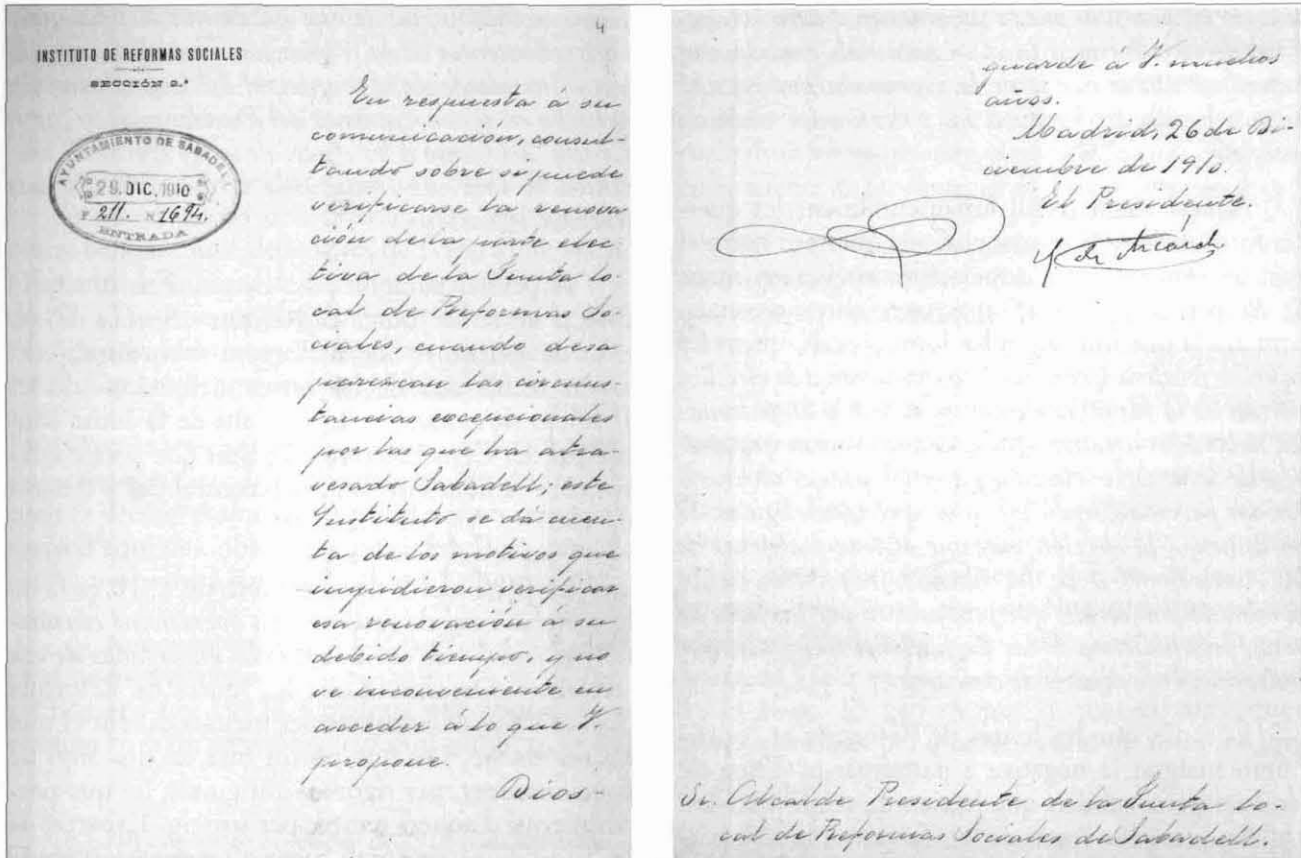 4
INSTITUTO DE REFORMAS SOCIALES
SECCIÓN 2.ª
AYUNTAMIENTO DE SABADELL
29. DIC. 1910
F 211. N 1694.
ENTRADA
En respuesta á su
comunicación, consul-
tando sobre si puede
verificarse la renova
ción de la parte elec
tiva de la Junta lo-
cal de Reformas So-
ciales, cuando desa
parezcan las circuns
tancias excepcionales
por las que ha atra-
vesado Sabadell, este
Instituto se da cuen-
ta de los motivos que
impidieron verificar
esa renovación á su
debido tiempo, y no
ve inconveniente en
acceder á lo que V.
propone.
Dios
guarde á V. muchos
años.
Madrid, 26 de Di-
ciembre de 1910.
El Presidente.
Sr. Alcalde Presidente de la Junta lo-
cal de Reformas Sociales de Sabadell.